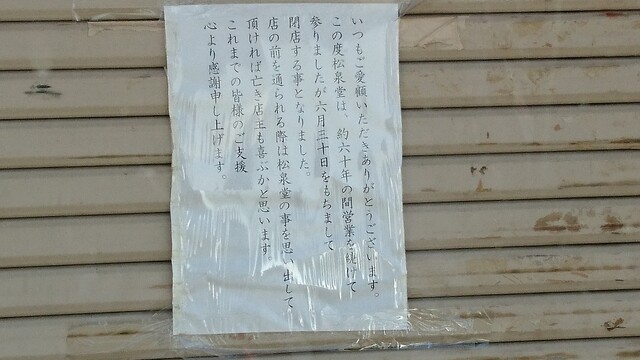 いつもご愛顧いただきありがとうございます。
この度松泉堂は、約六十年の間営業を続けて
参りましたが六月三十日をもちまして
閉店する事となりました。
店の前を通られる際は松泉堂の事を思い出して
頂ければ亡き店主も喜ぶかと思います。
これまでの皆様のご支援
心より感謝申し上げます。